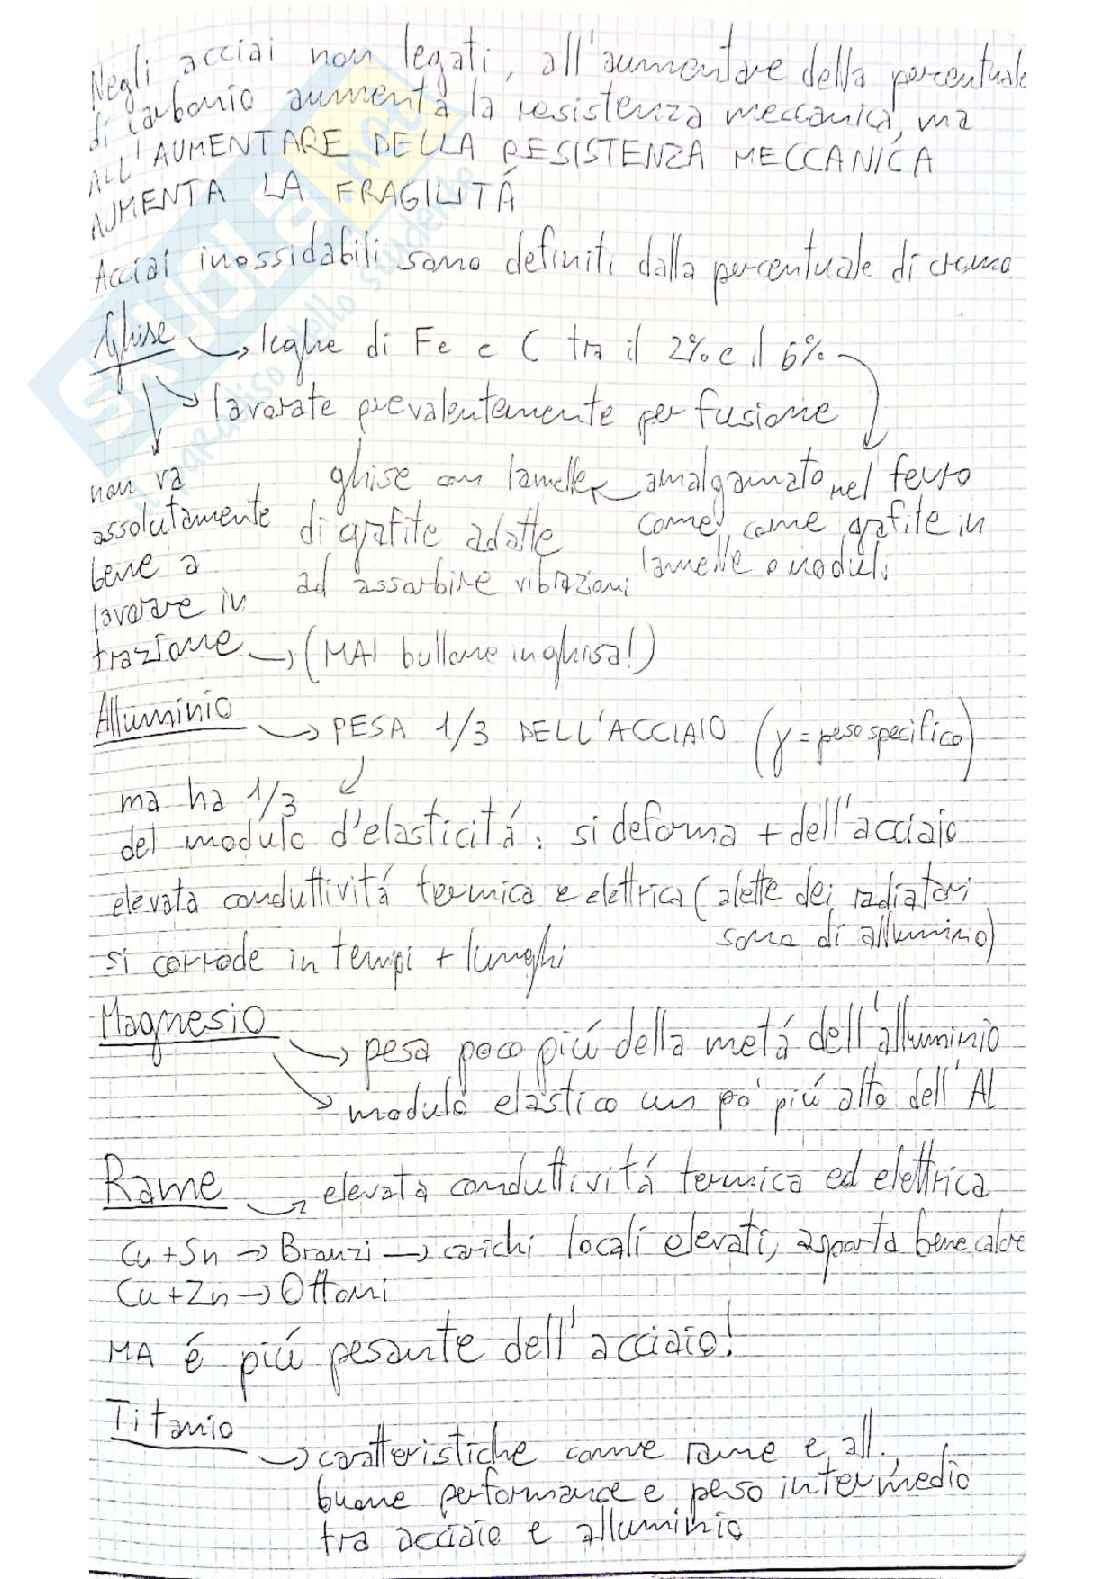 Negli acciai non legati, all'aumentare della percentuale
di carbonio aumenta la resistenza meccanica, ma
ALL'AUMENTARE DELLA RESISTENZA MECCANICA
AUMENTA LA FRAGILITÁ
Acciai inossidabili sono definiti dalla percentuale di cromo
Ghise → leghe di Fe e C tra il 2% e il 6%
→ lavorate prevalentemente per fusione
non va
assolutamente
bene a
lavorare in
trazione → (MAI bullone in ghisa!)
ghise con lamelle
di grafite adatte
ad assorbire vibrazioni
amalgamato nel ferro
come, come grafite in
lamelle o noduli
Alluminio → PESA 1/3 DELL'ACCIAIO (γ = peso specifico)
ma ha 1/3
del modulo d'elasticitá: si deforma + dell'acciaio
elevata conduttivitá termica e elettrica (alette dei radiatori
sono di alluminio)
si corrode in tempi + lunghi
Magnesio → pesa poco piú della metá dell'alluminio
→ modulo elastico un po' piú alto dell'Al
Rame → elevata conduttivitá termica ed elettrica
Cu + Sn → Bronzi → carichi locali elevati, asporta bene calore
Cu + Zn → Ottoni
MA é piú pesante dell'acciaio!
Titanio → caratteristiche come rame e all.,
buone performance e peso intermedio
tra acciaio e alluminio
SKUOLA.not
paradiso dello studente